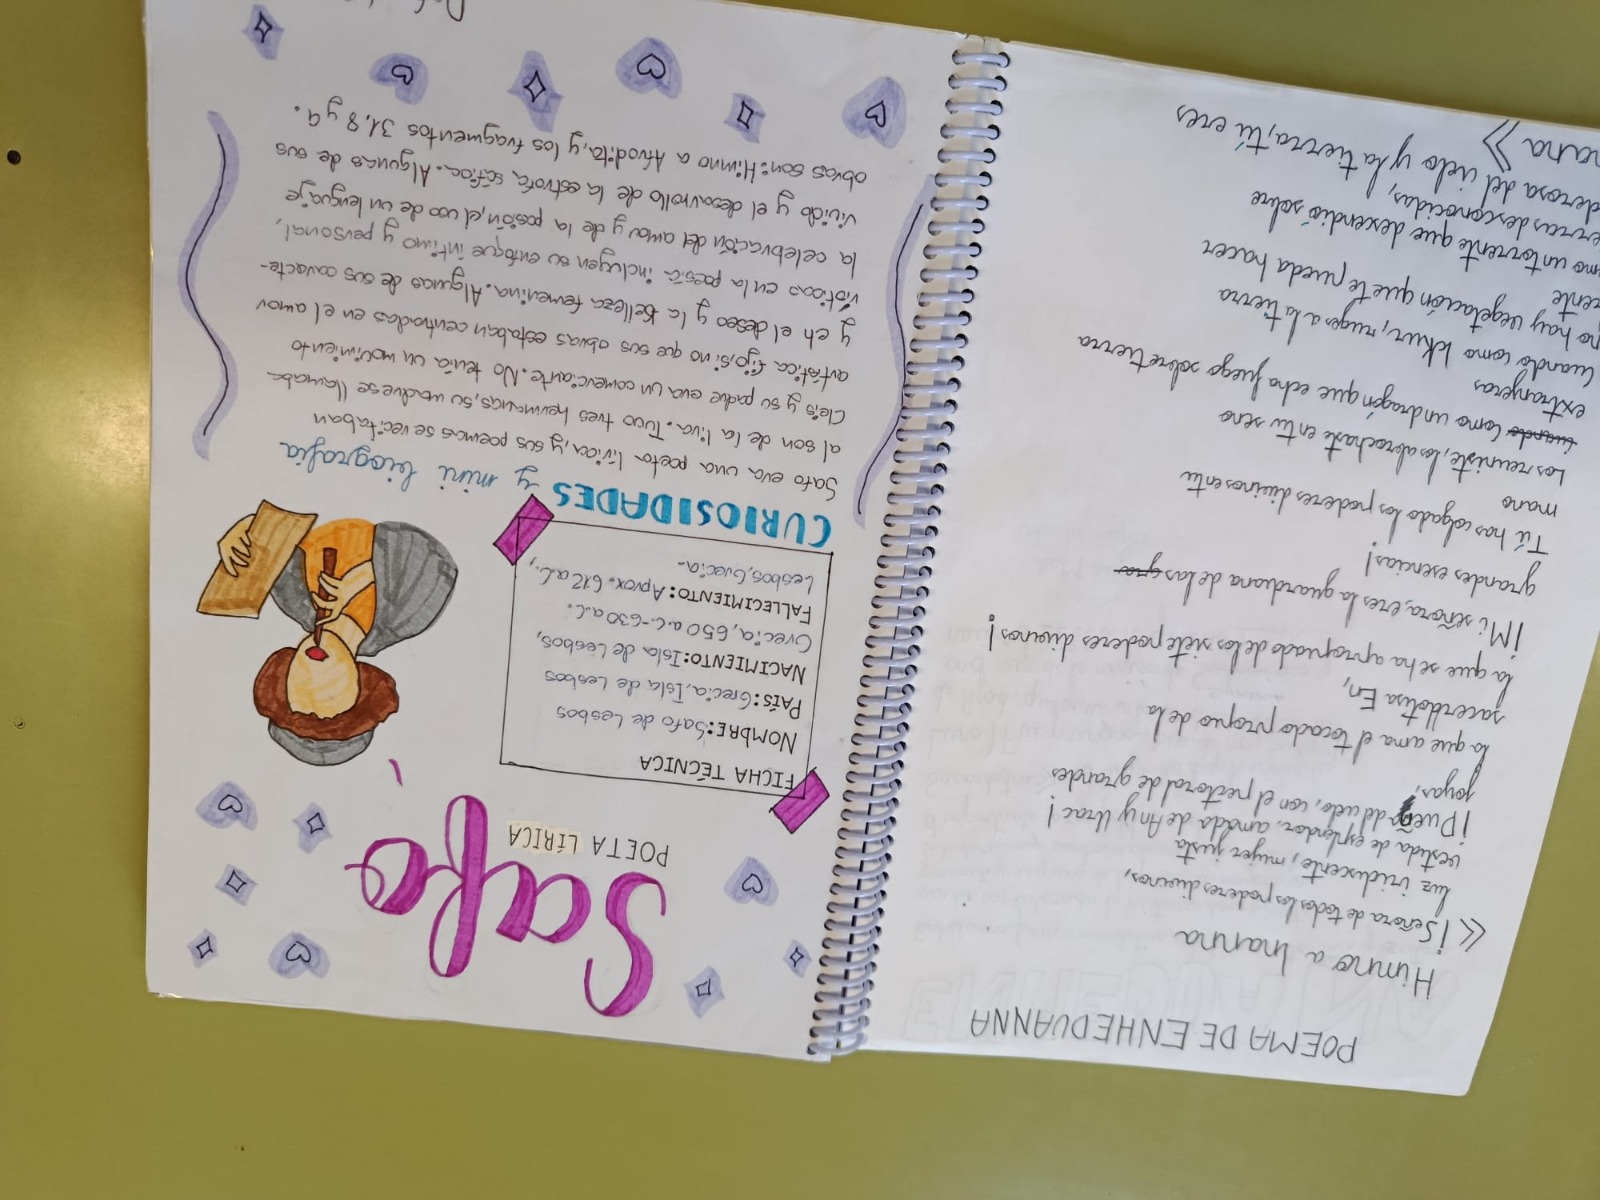 POEMA DE ENHEDUANNA
Himno a Inanna
«¡Señora de todos los poderes divinos,
luz iridiscente, mujer justa
vestida de esplendor, amada de An y Urac!
¡Dueña del cielo, con el pectoral de grandes
joyas,
la que ama el tocado propio de la
sacerdotisa En,
la que se ha apropiado de los siete poderes divinos!
¡Mi señora, eres la guardiana de las gra
grandes esencias!
Tú has colgado los poderes divinos en tu
mano
Los reuniste, los abrochaste en tu seno
cuando Como un dragón que echa fuego sobre tierra
extranjeros
Cuando como Ickur, ruges a la tierra
no hay vegetación que te pueda hacer
omo un torrente que descendió sobre
desconocidas,
derosa del cielo y la tierra, tú eres
»
Safo
POETA LÍRICA
FICHA TÉCNICA
NOMBRE: Safo de Lesbos
PAÍS: Grecia, Isla de Lesbos
NACIMIENTO: Isla de Lesbos,
Grecia, 650 a.C.-630 a.C.
FALLECIMIENTO: Aprox. 612 a.C.,
Lesbos, Grecia.
CURIOSIDADES y mini biografía
Safo era una poeta lírica, y sus poemas se recitaban
al son de la lira. Tuvo tres hermanas, su madre se llamaba
Cleis y su padre era un comerciante. No tenía un movimiento
artístico fijo, si no que sus obras estaban centradas en el amor
y en el deseo y la belleza femenina. Algunas de sus caracte-
rísticas en la poesía incluyen su enfoque íntimo y personal,
la celebración del amor y de la pasión, el uso de un lenguaje
vívido y el desarrollo de la estrofa sáfica. Algunas de sus
obras son: Himno a Afrodita, y los fragmentos 31, 8 y 9.